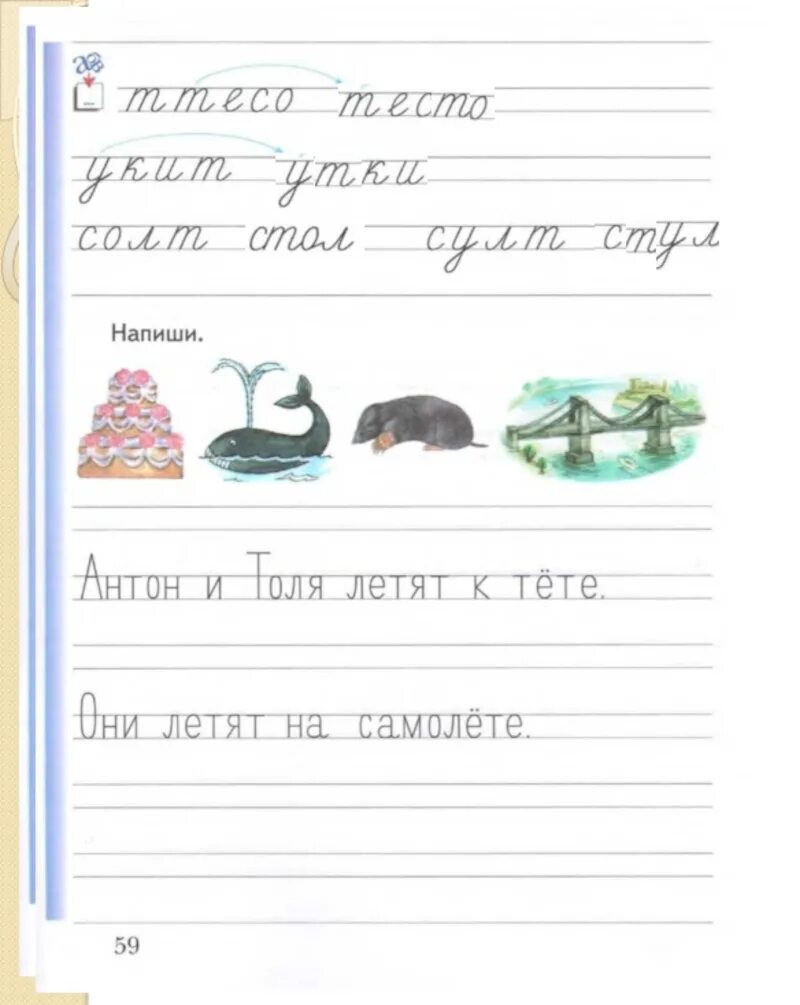 ттесо тесто
укит утки
солт стол султ стул
Напиши.
Антон и Толя летят к тёте.
Они летят на самолёте.
59